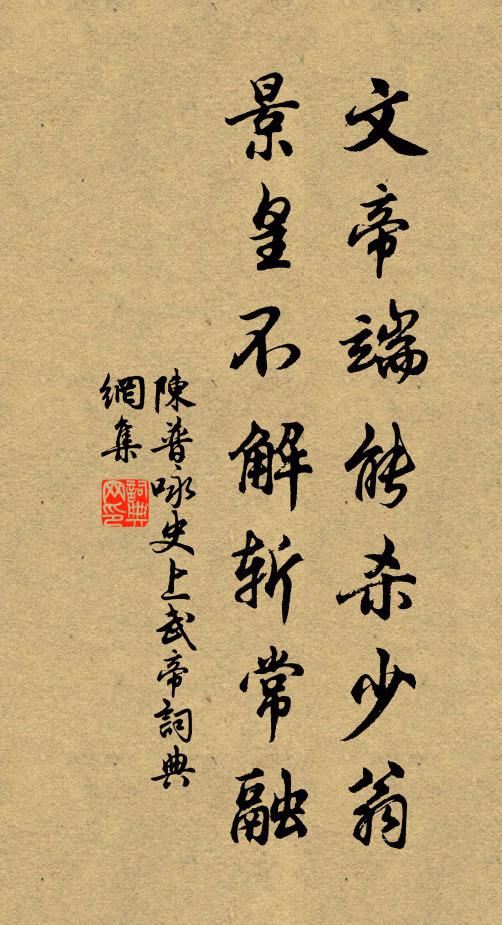 文帝端能杀少翁
景皇不解斩常融
陳普咏史上武帝詞典
網集
詞典
网印